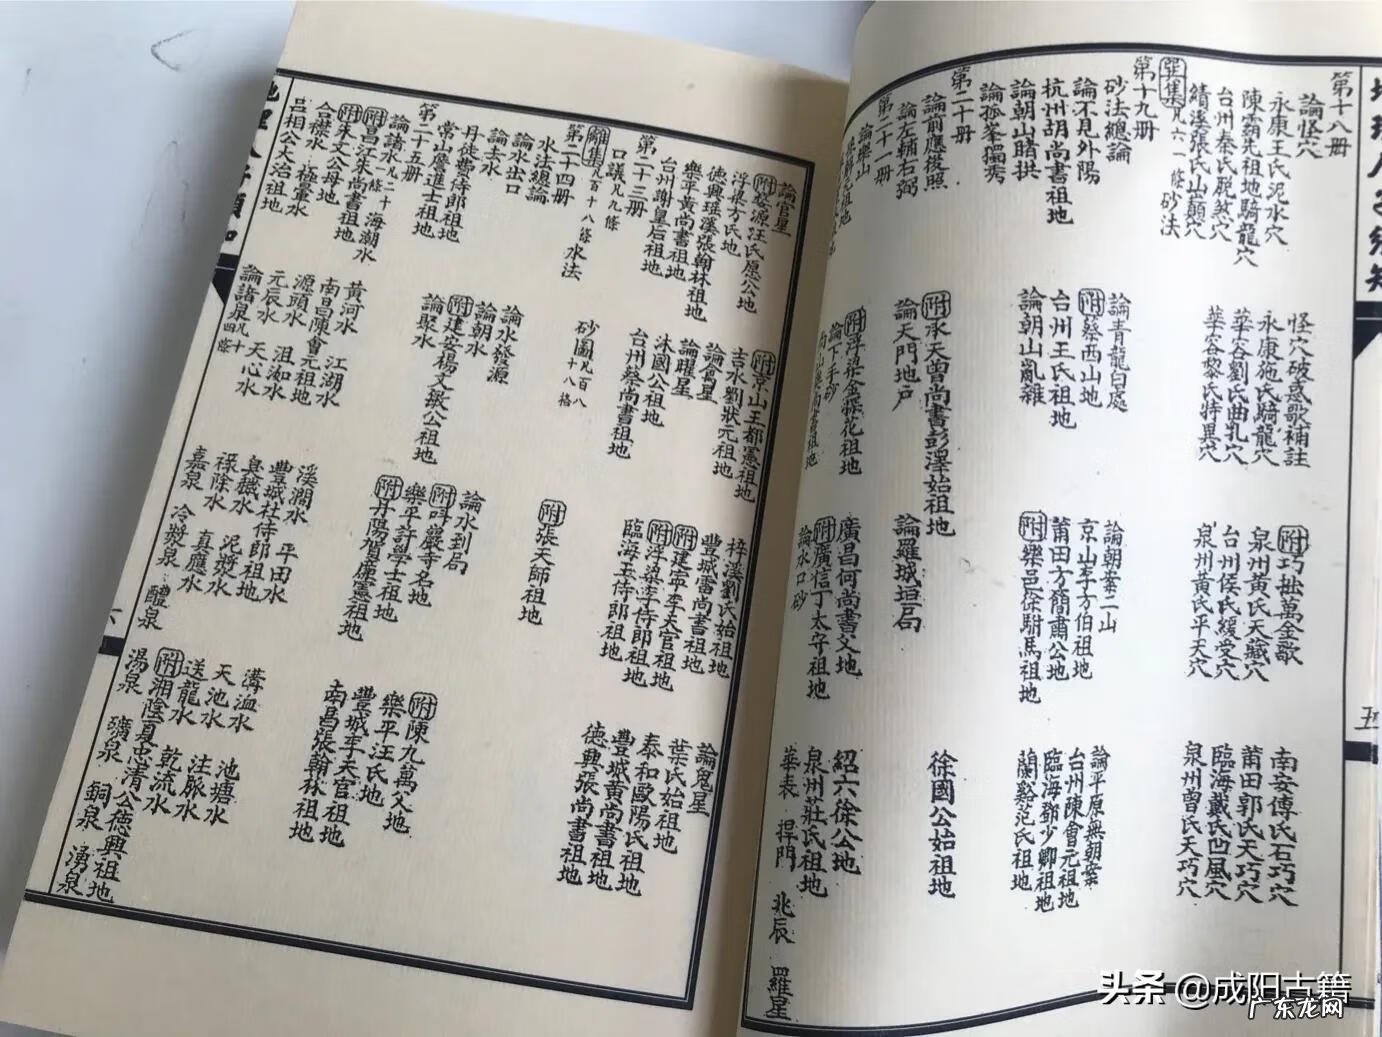 第十八冊
論怪穴
怪穴破惑歌補註
附巧拙萬金歌
南安傅氏石巧穴
永康王氏泥水穴
永康施氏騎龍穴
泉州黃氏天藏穴
莆田郭氏天巧穴
陳霸先祖地騎龍穴
華容劉氏曲乳穴
台州侯氏緩受穴
臨海戴氏凹風穴
台州秦氏脫煞穴
華容黎氏特異穴
泉州黃氏平天穴
泉州曾氏天巧穴
績溪張氏山巔穴
巽集凡六一條砂法
第十九冊
砂法總論
論青龍白虎
論朝案二山
論平原無朝案
論不見外陽
附蔡西山地
京山李方伯祖地
台州陳會元祖地
杭州胡尚書祖地
台州王氏祖地
莆田方簡肅公地
臨海鄧少卿祖地
論朝山賭拱
論朝山亂雜
附樂邑徐駙馬祖地
蘭谿范氏祖地
論孤峯獨秀
第二十冊
論前應後照
附承天曾尚書彭澤始祖地
徐國公始祖地
論左輔右弼
論天門地戶
論羅城垣局
第二十一冊
論樂山
附浮梁金探花祖地
廣昌何尚書父地
紹六徐公地
論下手砂
附廣信丁太守祖地
泉州莊氏祖地
論水口砂
華表 捍門 兆辰 羅星
論官星
附京山王都憲祖地
梓溪劉氏始祖地
論鬼星
附婺源汪氏愿公地
吉水劉狀元祖地
豐城雷尚書祖地
葉氏始祖地
浮梁方氏地
論禽星
附建寧李天官祖地
泰和歐陽氏祖地
德興瑋溪張翰林祖地
論曜星
附浮梁李侍郎祖地
豐城黃尚書祖地
樂平黃尚書祖地
沐國公祖地
臨海王侍郎祖地
德興張尚書祖地
台州謝皇后祖地
台州蔡尚書祖地
第二十三冊
口議凡九條
砂圖凡百八十八格
附張天師祖地
離集凡百十八條水法
第二十四冊
水法總論
論水發源
論水到局
附陳九萬父地
論水出口
論朝水
附吽嚴寺名地
樂平汪氏地
論去水
附建安楊文敏公祖地
樂平許學士祖地
豐城李天官祖地
丹徒費侍郎祖地
論聚水
附丹陽賀廉憲祖地
南昌張翰林祖地
常山詹進士祖地
第二十五冊
論諸水凡二十條
海潮水
黃河水
江湖水
溪澗水
平田水
溝洫水
池塘水
附昌江朱尚書祖地
南昌陳會元祖地
豐城杜侍郎祖地
天池水
注脈水
附朱文公母地
源頭水
沮洳水
臭穢水
泥漿水
送龍水
乾流水
合襟水
極暈水
元辰水
天心水
祿除水
真應水
附湘陰夏忠清公德興祖地
呂相公大治祖地
論諸泉凡十四條
嘉泉
冷漿泉
醴泉
湯泉
礦泉
銅泉
湧泉
五
六
头条 @成阳古籍
广东龙网